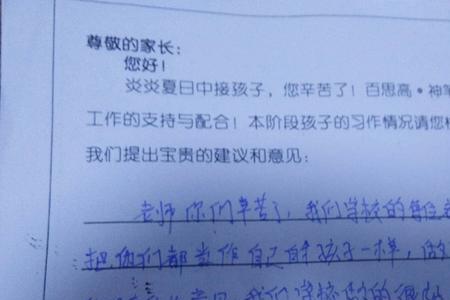 尊敬的家长：
您好！
炎炎夏日中接孩子，您辛苦了！百思高·神笔
工作的支持与配合！本阶段孩子的习作情况请您
我们提出宝贵的建议和意见：
老师你们辛苦了，我们学校的每位
把他们都当作自己自家孩子一样，
我们学校